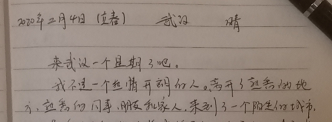 2020年二月4日（立春） 武汉 晴
来武汉一个星期了吧。
我不是一个丝情开朗的人。离开了熟悉的地
方、熟悉的同事、朋友和家人，来到了一个陌生的城市，